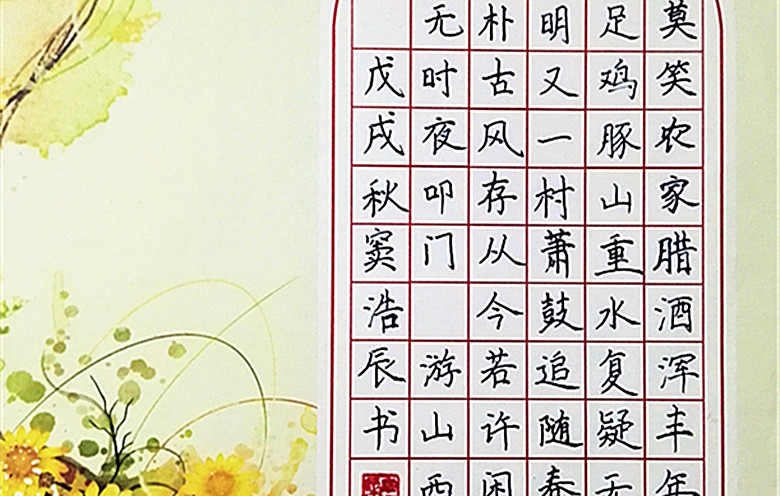 莫笑农家腊酒浑丰年
足鸡豚山重水复疑无
明又一村萧鼓追随春
朴古风存从今若许闲
无时夜叩门 游山西
戊戌秋窦浩辰书